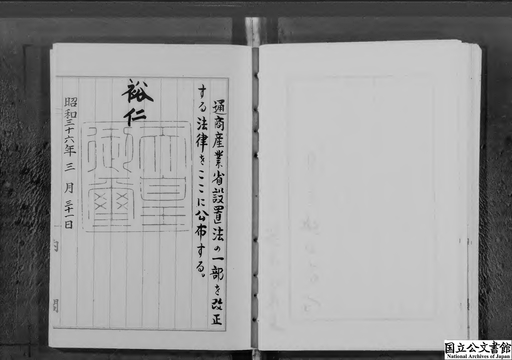 通商産業省設置法の一部を改正
する法律をここに公布する。
裕仁
天皇
御璽
昭和三十六年三月三十一日
国立公文書館
National Archives of Japan